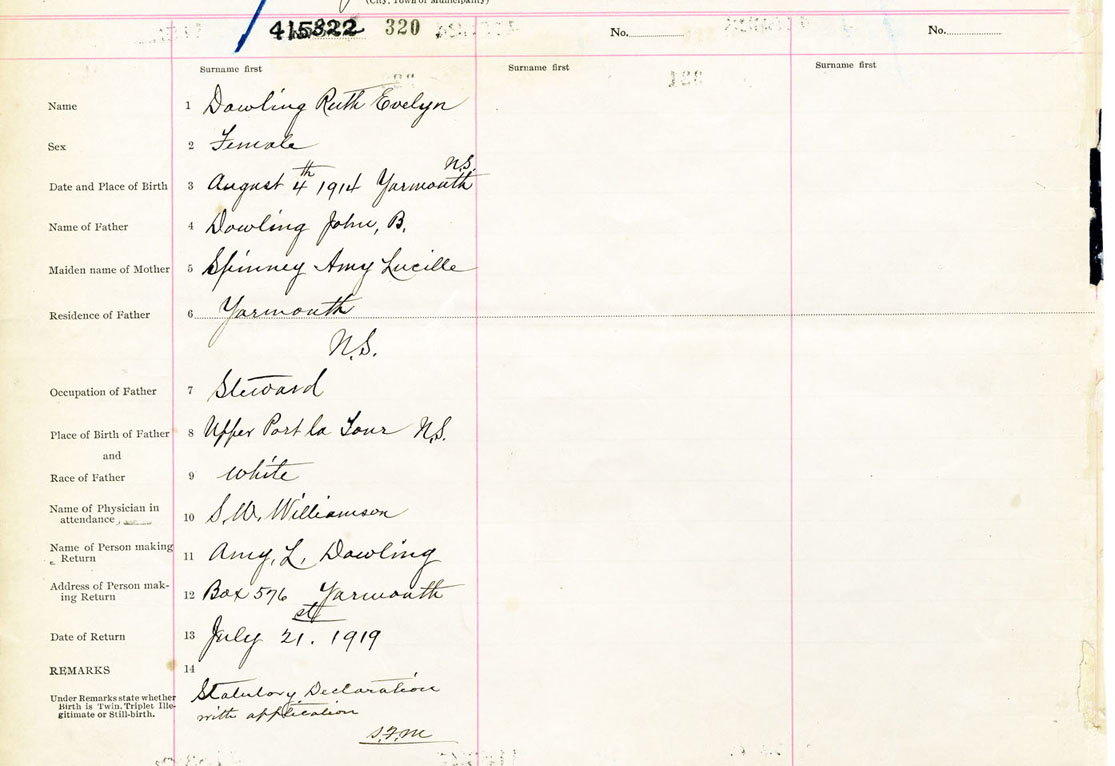 (City, Town or Municipality)
415322 320
No.
No.
Surname first
Surname first
Surname first
Name 1 Dowling Ruth Evelyn
Sex 2 Female
N.S.
Date and Place of Birth 3 August 4th 1914 Yarmouth
Name of Father 4 Dowling John, B.
Maiden name of Mother 5 Spinney Amy Lucille
Residence of Father 6 Yarmouth
N.S.
Occupation of Father 7 Steward
Place of Birth of Father 8 Upper Port la Tour N.S.
and
Race of Father 9 White
Name of Physician in
attendance 10 S.W. Williamson
Name of Person making
Return 11 Amy, L, Dowling
Address of Person mak-
ing Return 12 Box 576 Yarmouth
Date of Return 13 July 21st. 1919
REMARKS 14
Under Remarks state whether
Birth is Twin, Triplet Ille-
gitimate or Still-birth.
Statutory Declaration
with application
S.F.M